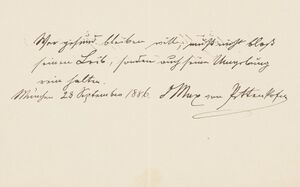 Wer gesund bleiben will, muß nicht bloß
seinen Leib, sondern auch seine Umgebung
rein halten.
München 23 September 1886. Dr Max von Pettenkofer